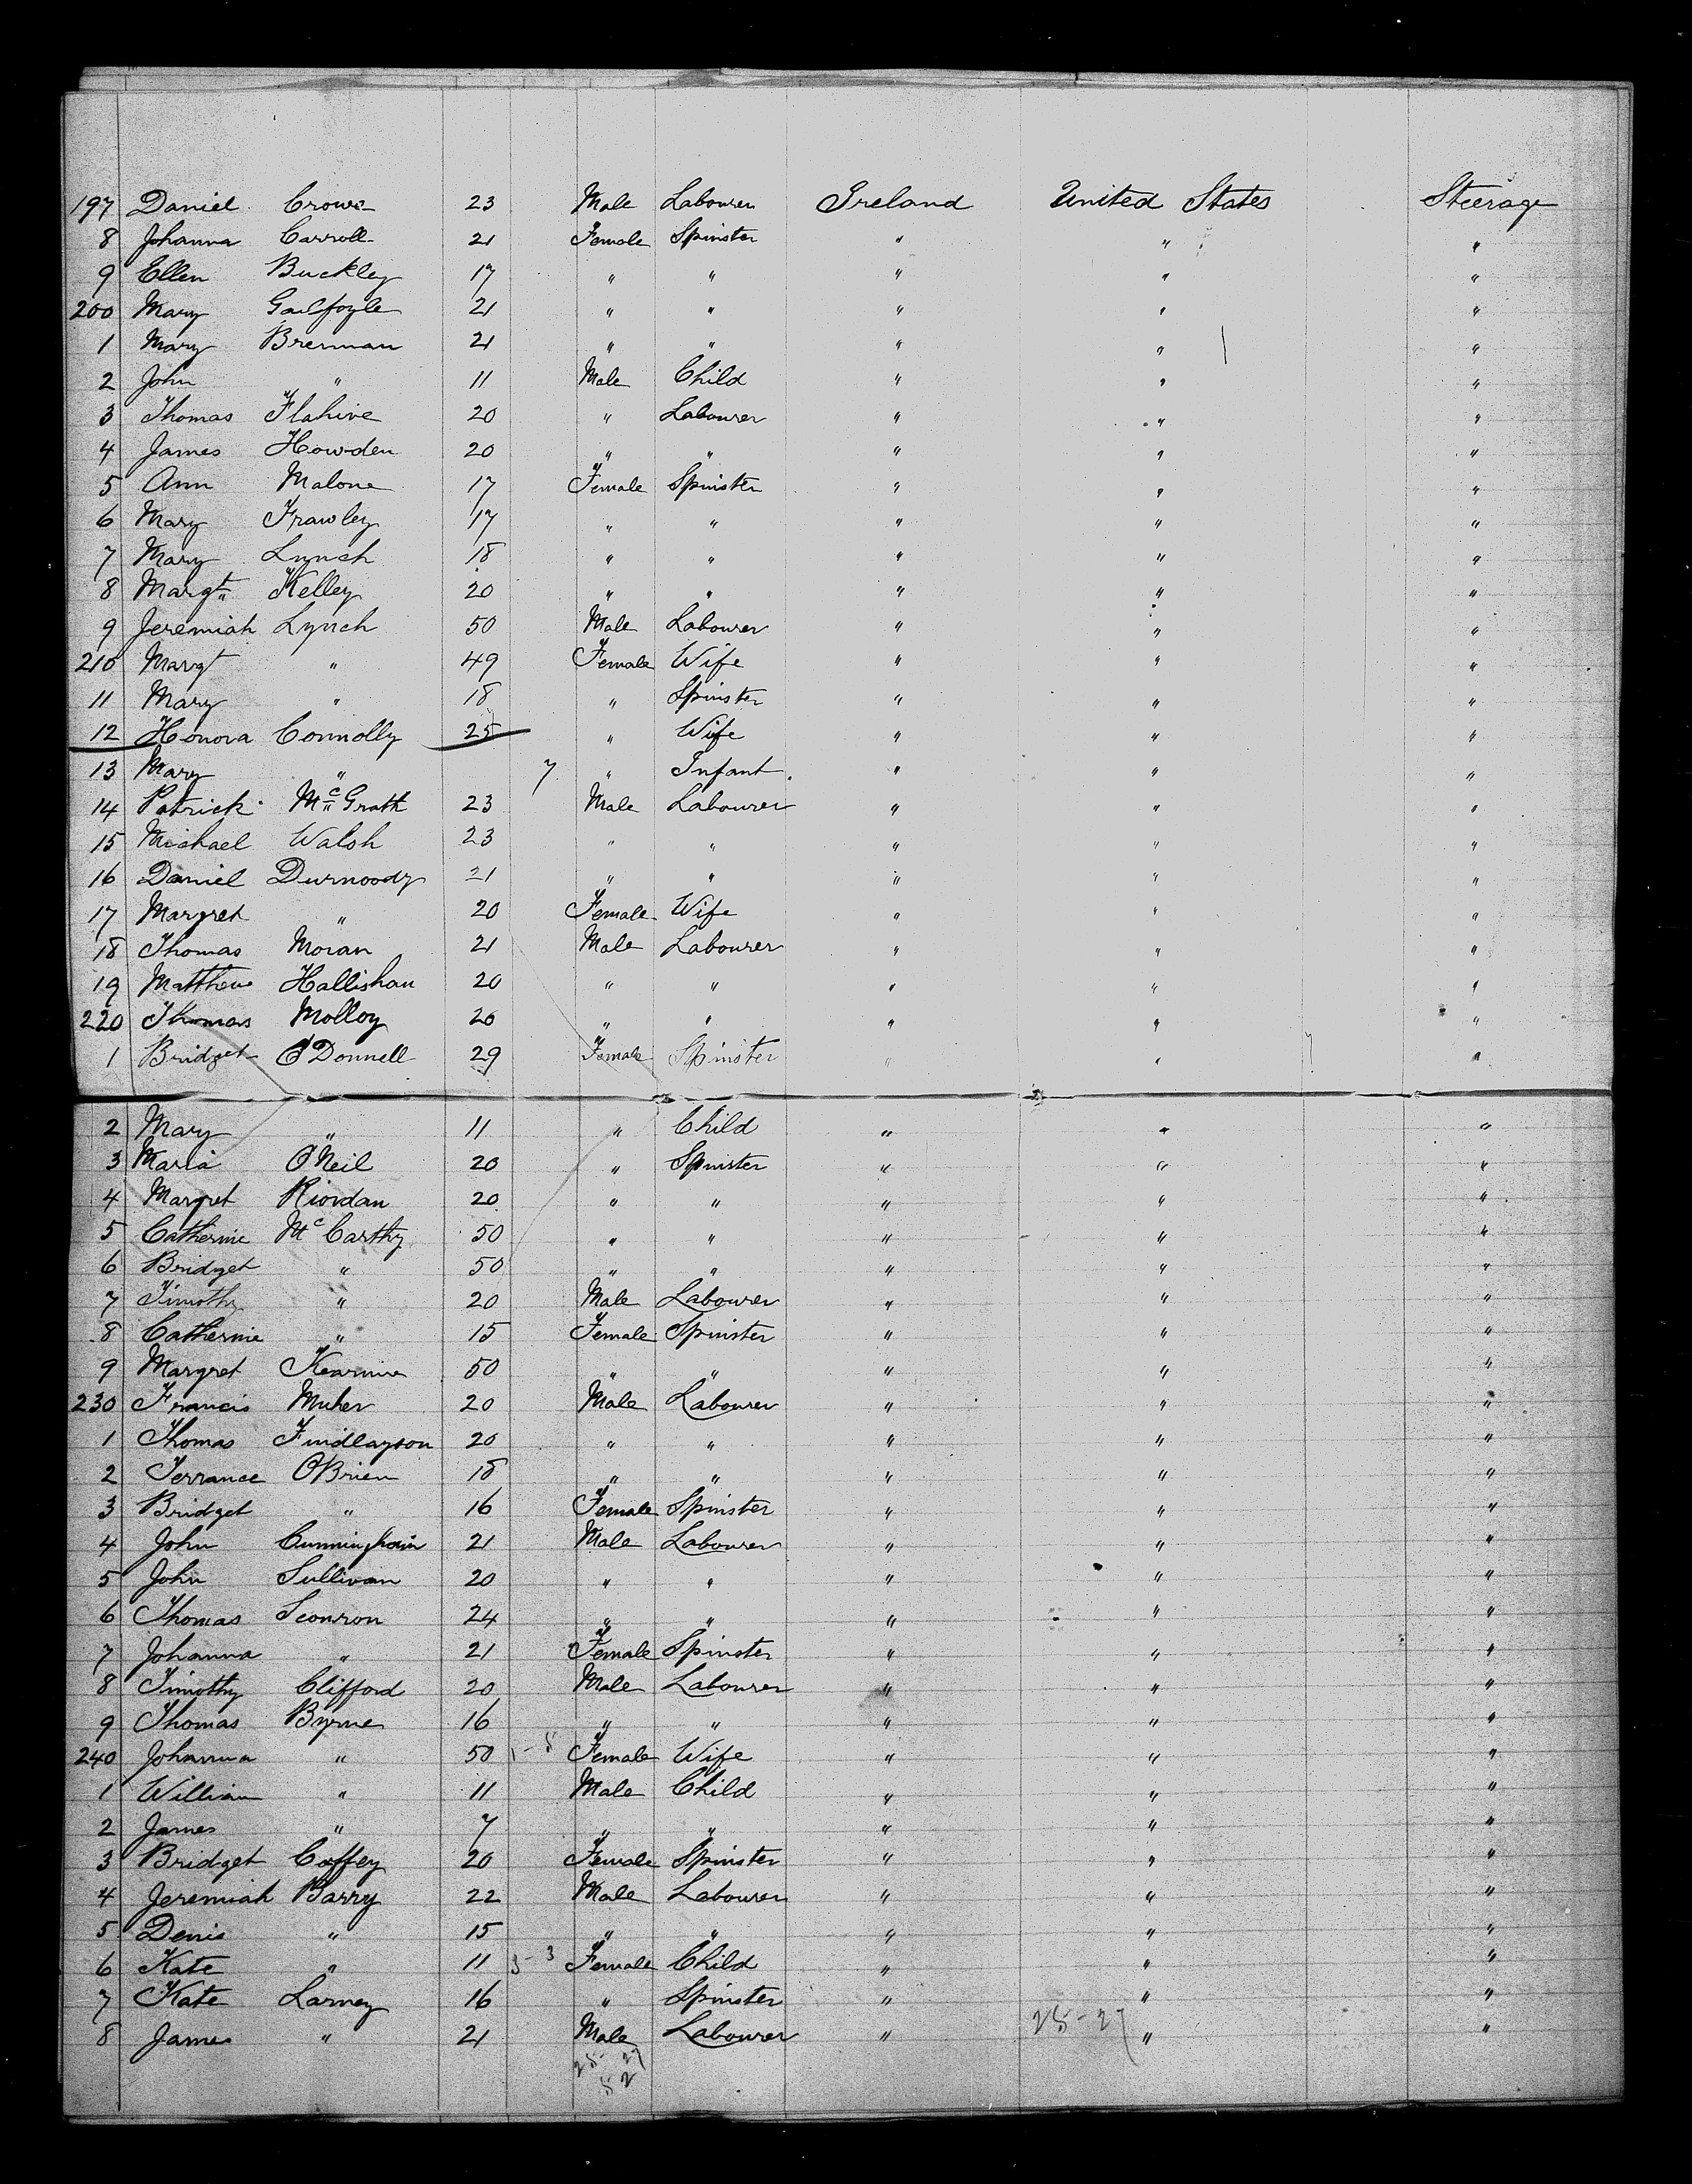 197 Daniel Crowe 23 Male Labourer Ireland United States Steerage
8 Johanna Carroll 21 Female Spinster " " "
9 Ellen Buckley 17 " " " " "
200 Mary 21 " " " " "
1 Mary Brennan 21 " " " " "
2 John " 11 Male Child " " "
3 Thomas Flahive 20 " Labourer " " "
4 James Howden 20 " " " " "
5 Ann Malone 17 Female Spinster " " "
6 Mary Frawley 17 " " " " "
7 Mary Lynch 18 " " " " "
8 Margt Kelley 20 " " " " "
9 Jeremiah Lynch 50 Male Labourer " " "
210 Margt " 49 Female Wife " " "
11 Mary " 18 " Spinster " " "
12 Honora Connolly 25 " Wife " " "
13 Mary " 7 " Infant " " "
14 Patrick McGrath 23 Male Labourer " " "
15 Michael Walsh 23 " " " " "
16 Daniel Durnoody 21 " " " " "
17 Margret " 20 Female Wife " " "
18 Thomas Moran 21 Male Labourer " " "
19 Matthew Hallishan 20 " " " " "
220 Thomas Molloy 20 " " " " "
1 Bridget O'Donnell 29 Female Spinster " " "
2 Mary " 11 " Child " " "
3 Maria O'Neil 20 " Spinster " " "
4 Margret Riordan 20 " " " " "
5 Catherine McCarthy 50 " " " " "
6 Bridget " 50 " " " " "
7 Timothy " 20 Male Labourer " " "
8 Catherine " 15 Female Spinster " " "
9 Margret 50 " " " " "
230 Francis 20 Male Labourer " " "
1 Thomas Findlayson 20 " " " " "
2 Terrance OBrien 18 " " " " "
3 Bridget " 16 Female Spinster " " "
4 John Cunningham 21 Male Labourer " " "
5 John Sullivan 20 " " " " "
6 Thomas 24 " " " " "
7 Johanna " 21 Female Spinster " " "
8 Timothy Clifford 20 Male Labourer " " "
9 Thomas Byrne 16 " " " " "
240 Johanna " 50 Female Wife " " "
1 William " 11 Male Child " " "
2 James " 7 " " " " "
3 Bridget Coffey 20 Female Spinster " " "
4 Jeremiah Barry 22 Male Labourer " " "
5 Denis " 15 " " " " "
6 Kate " 11 3-3 Female Child " " "
7 Kate Larney 16 " Spinster " " "
8 James " 21 Male Labourer " 25-27 " "
25-27
52